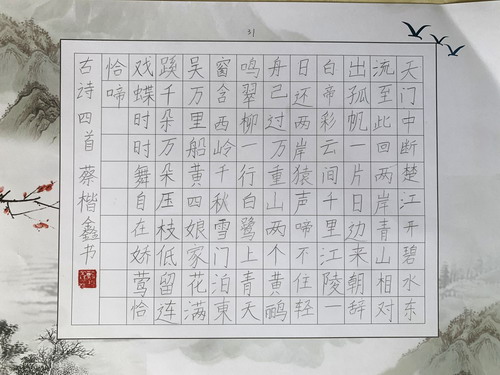 天门中断楚江开碧水东
流至此回两岸青山相对
出孤帆一片日边来朝辞
白帝彩云间千里江陵一
日还两岸猿声啼不住轻
舟已过万重山两个黄鹂
鸣翠柳一行白鹭上青天
窗含西岭千秋雪门泊東
吴万里船黄四娘家花满
蹊千朵万朵压枝低留连
戏蝶时时舞自在娇莺恰
恰啼
古诗四首 蔡楷鑫书